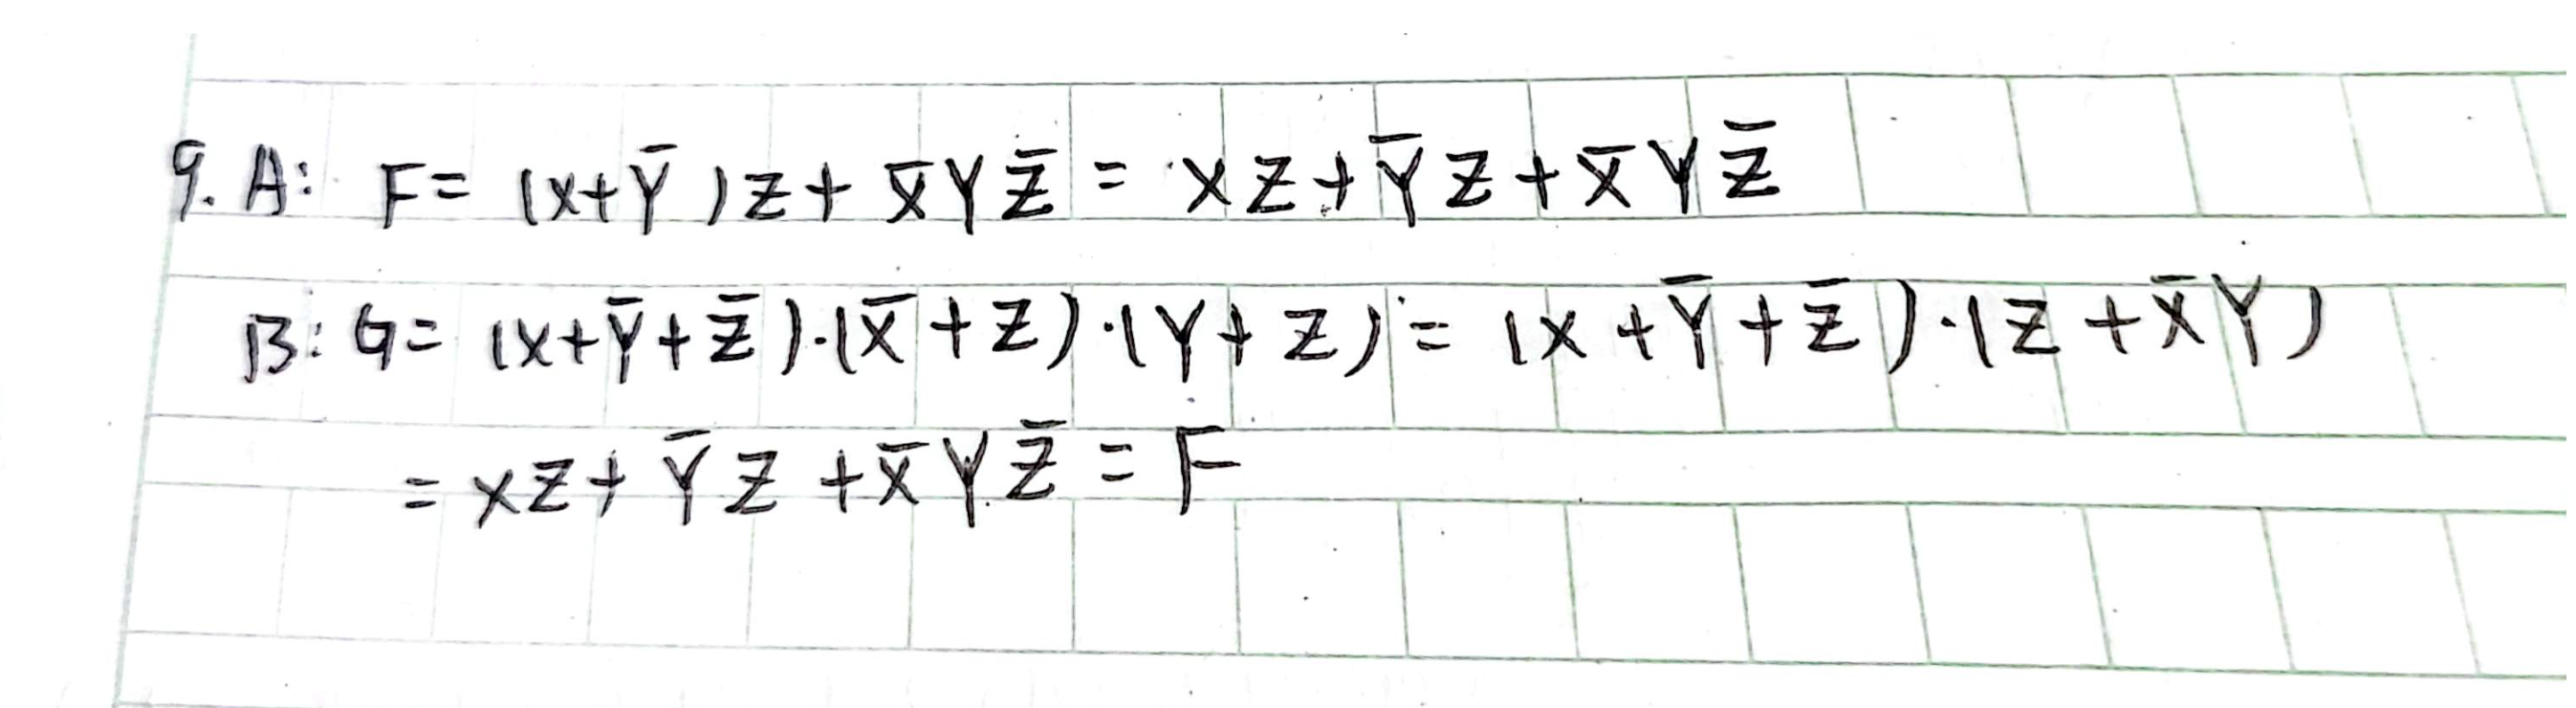 9. A: F= (X+Y̅)Z+X̅YZ̅ = XZ+Y̅Z+X̅YZ̅
B: G= (X+Y̅+Z̅)·(X̅+Z)·(Y+Z) = (X+Y̅+Z̅)·(Z+X̅Y)
= XZ+Y̅Z+X̅YZ̅ = F